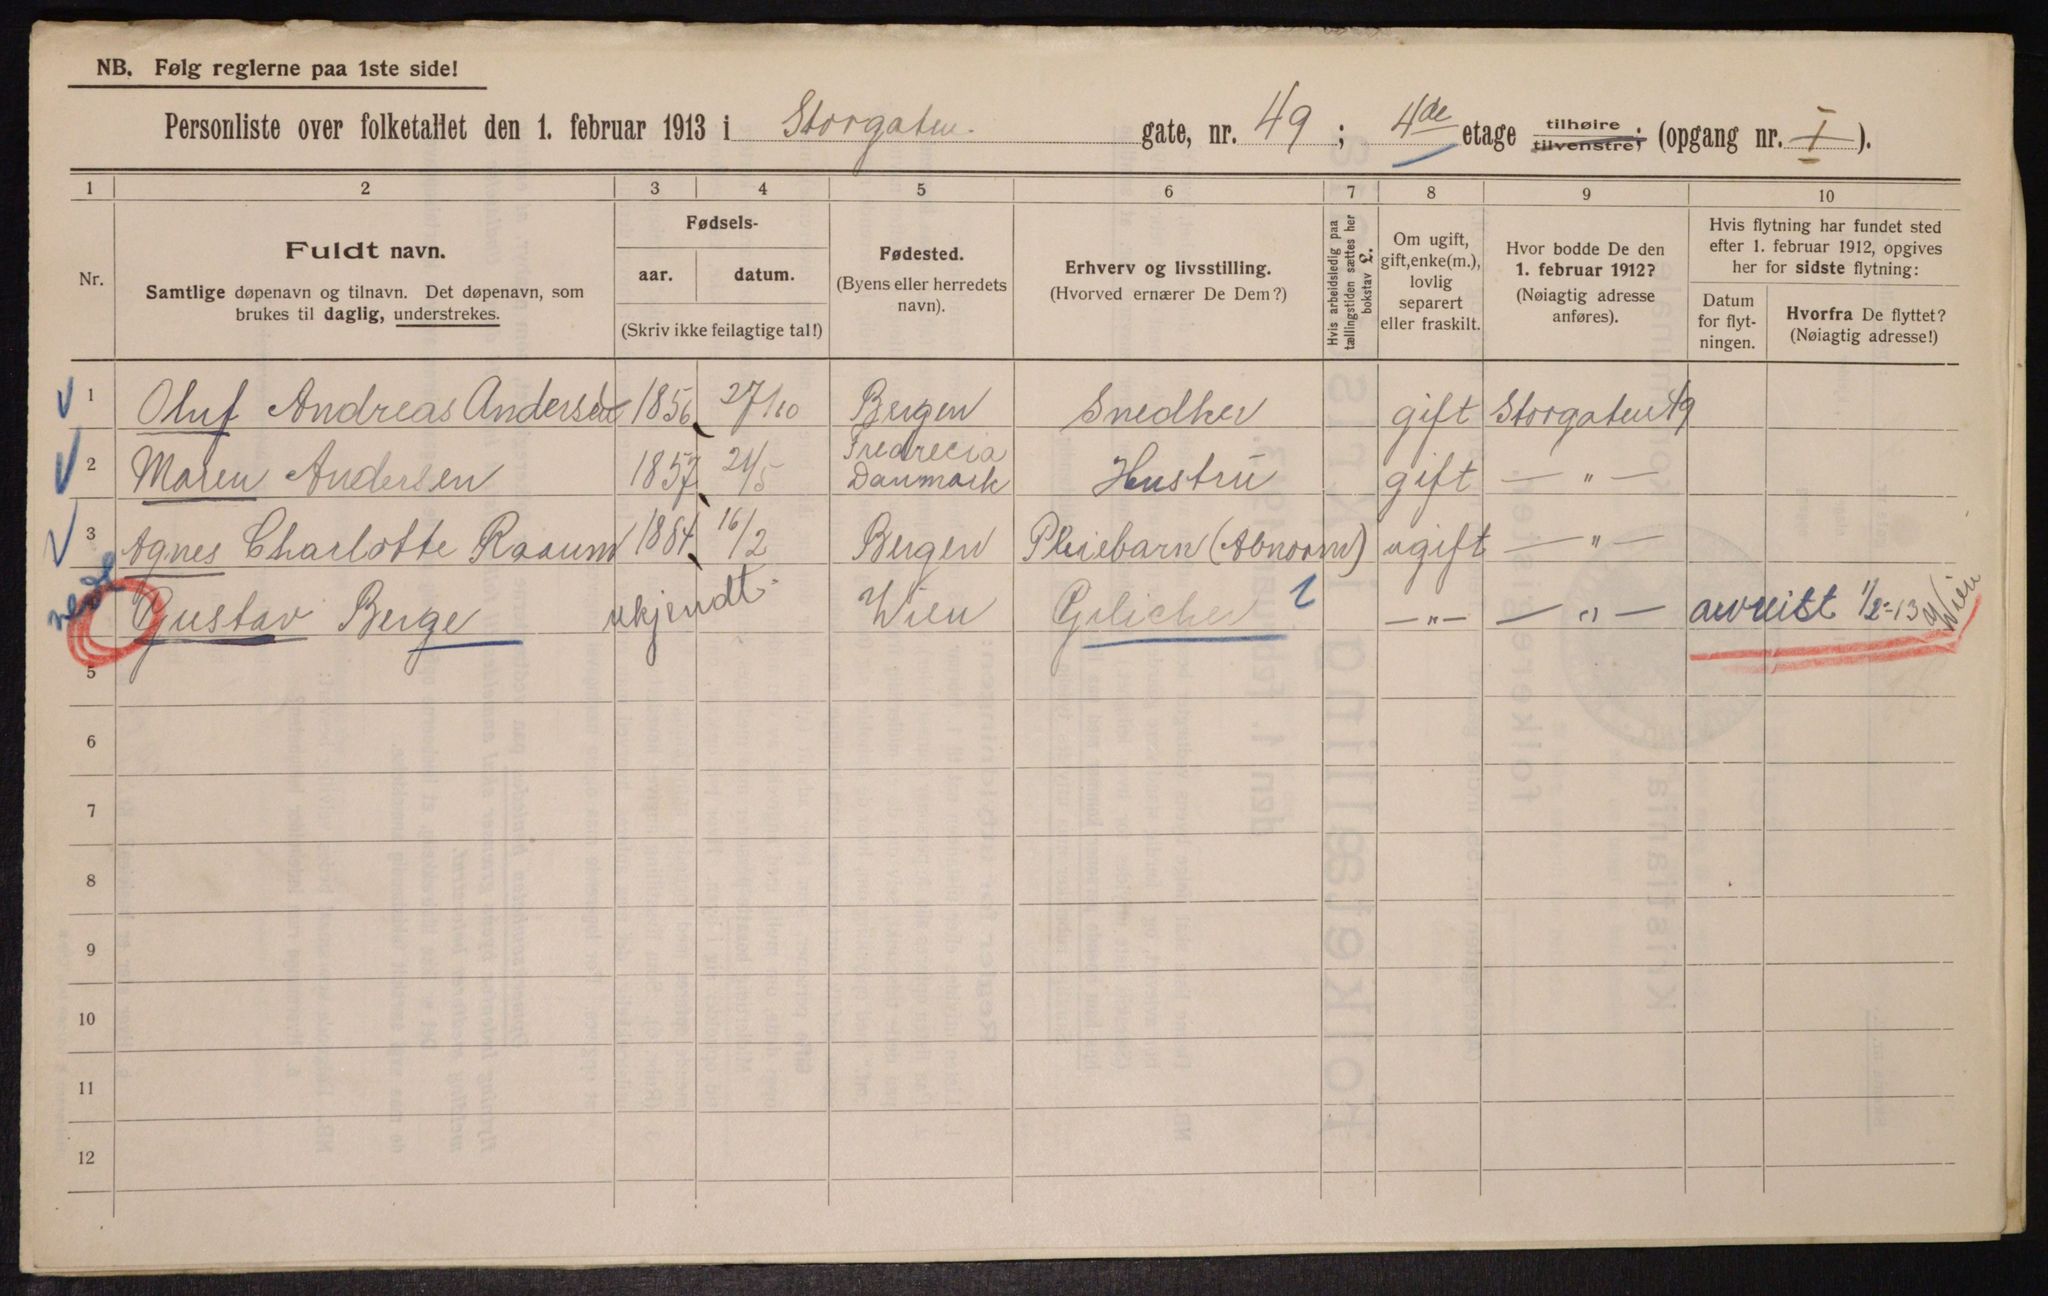 NB. Følg reglerne paa 1ste side!
Personliste over folketallet den 1. februar 1913 i Storgaten gate, nr. 49; 4de etage tilhøire tilvenstre; (opgang nr. I).
1 2 3 4 5 6 7 8 9 10
Nr.
Fuldt navn.
Samtlige døpenavn og tilnavn. Det døpenavn, som
brukes til daglig, understrekes.
Fødsels-
aar. datum.
(Skriv ikke feilagtige tal!)
Fødested.
(Byens eller herredets
navn).
Erhverv og livsstilling.
(Hvorved ernærer De Dem?)
Hvis arbeidsledig paa
tællingstiden sættes her
bokstav L.
Om ugift,
gift, enke(m.),
lovlig
separert
eller fraskilt.
Hvor bodde De den
1. februar 1912?
(Nøiagtig adresse
anføres).
Hvis flytning har fundet sted
efter 1. februar 1912, opgives
her for sidste flytning:
Datum
for flyt-
ningen.
Hvorfra De flyttet?
(Nøiagtig adresse!)
1 Oluf Andreas Andersen 1856 27/10 Bergen Snedker gift Storgaten 49
2 Maren Andersen 1857 21/5 Fredrecia Danmark Hustru gift — " —
3 Agnes Charlotte Raaum 1884 16/2 Bergen Pleiebarn (Abnorm) ugift — " —
Gustav Berge ukjendt Wien —"— — " — avreist 1/2-13 Wien
5
6
7
8
9
10
11
12